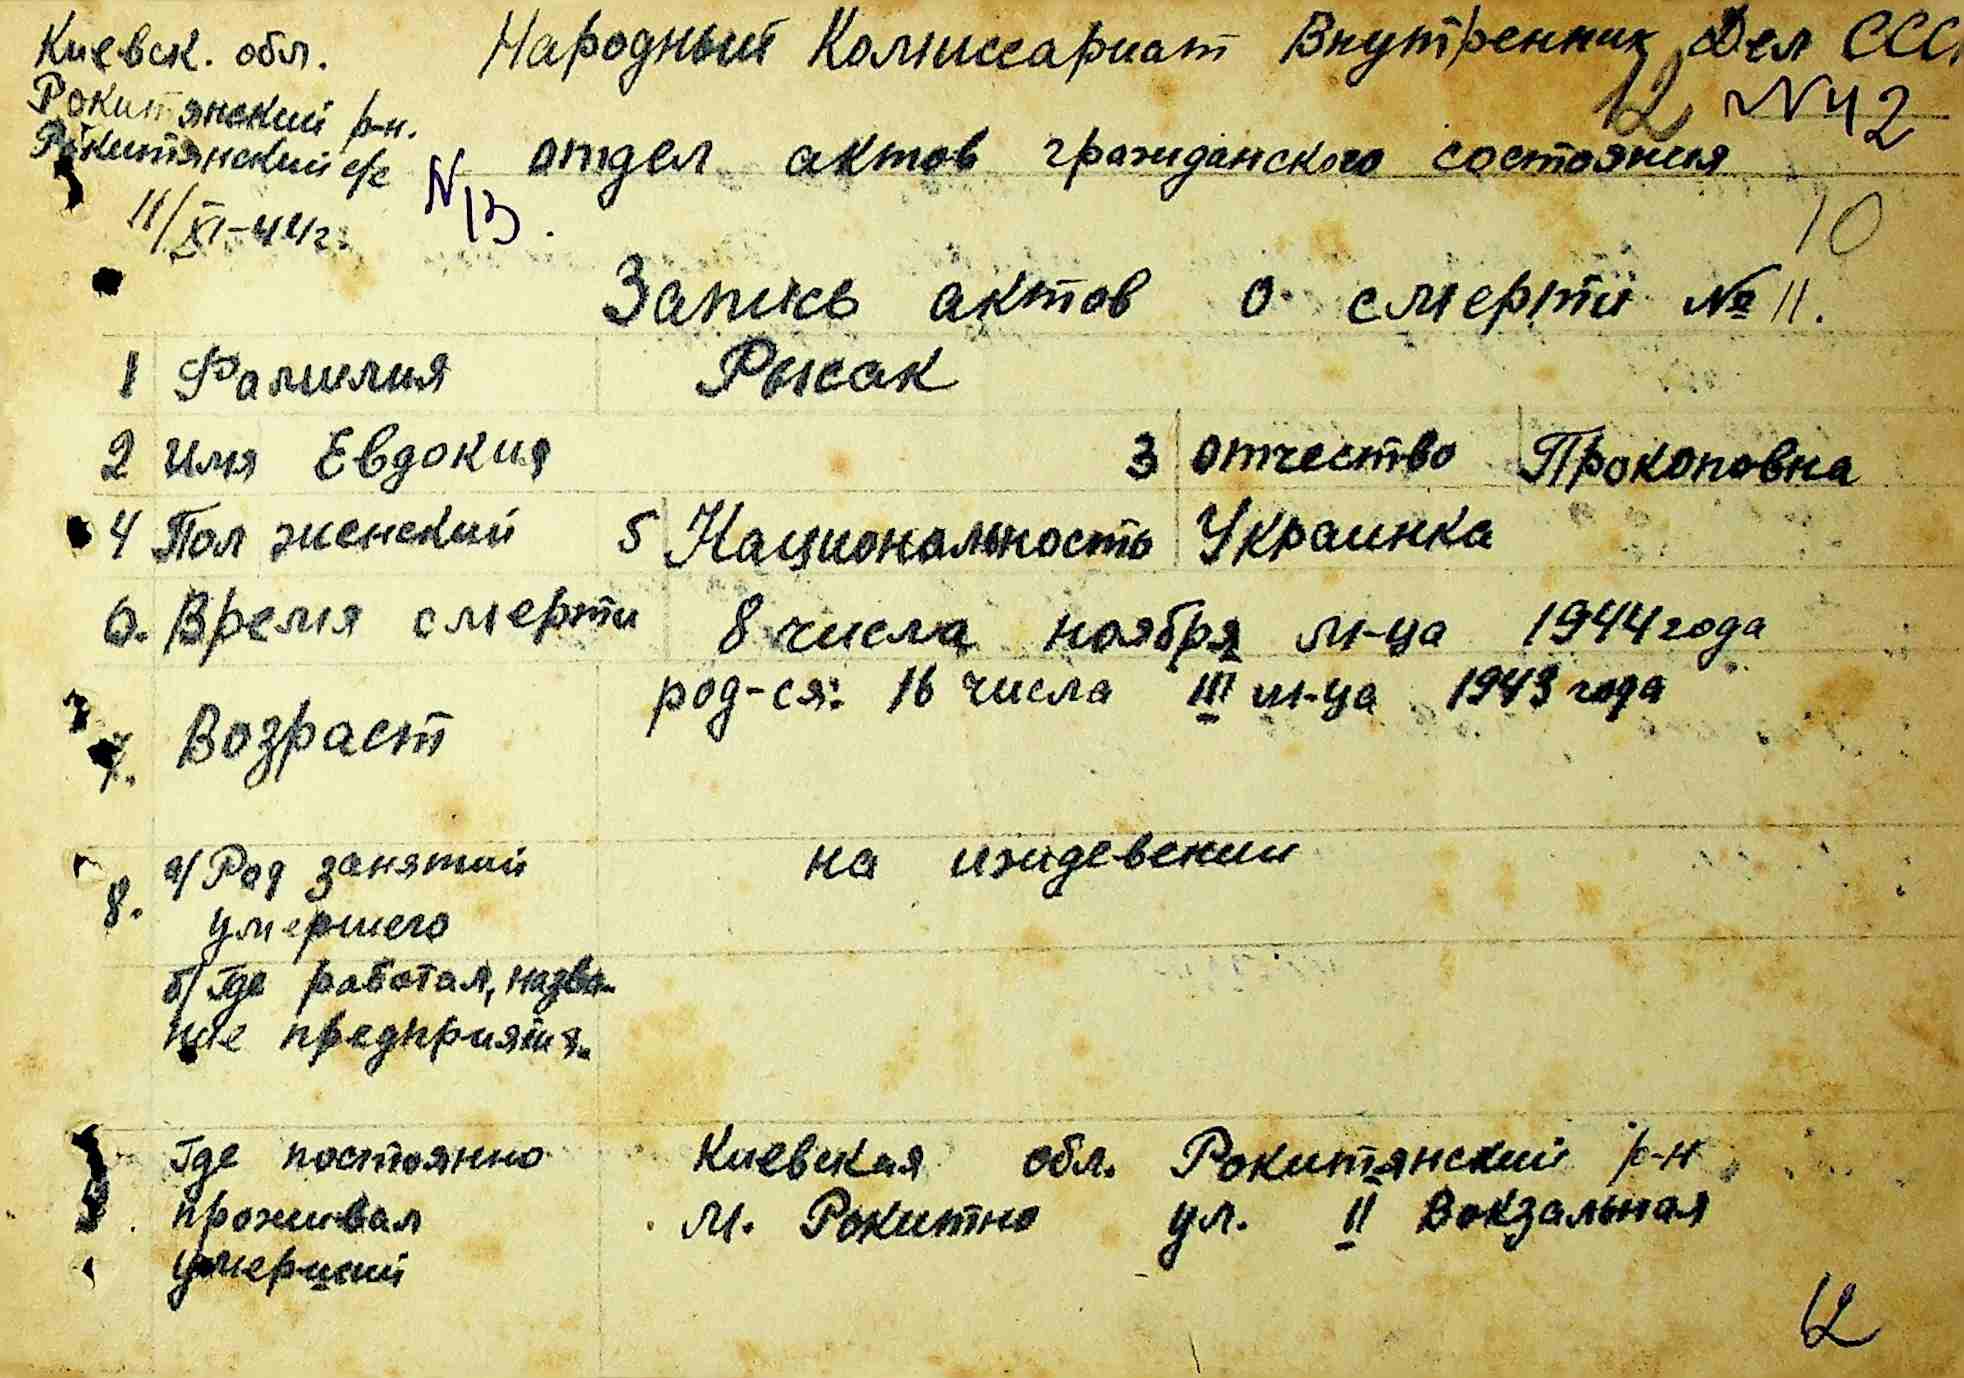 Киевск. обл.
Народный Комиссариат Внутренних Дел ССС
Рокитянский р-н.
12 N42
Рокитянский с/с
отдел актов гражданского состояния
11/XI-44г.
N13.
10
Запись актов о смерти № 11.
1 Фамилия Рысак
2 Имя Евдокия 3 отчество Прокоповна
4 Пол женский 5 Национальность Украинка
6. Время смерти 8 числа ноября м-ца 1944 года
род-ся: 16 числа III м-ца 1943 года
7. Возраст
8. а/ Род занятий на иждевении
умершего
б/ Где работал, назва-
ние предприятия.
Где постоянно Киевская обл. Рокитянский р-н
проживал м. Рокитно ул. II Вокзальная
умерший
12